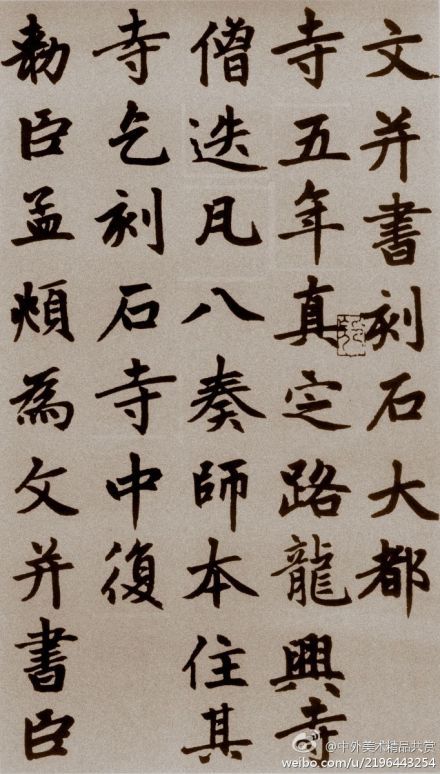 文并書刻石大都
寺五年真定路龍興寺
僧迭凡八奏師本住其
寺乞刻石寺中復
勅臣孟頫為文并書臣
@中外美术精品共赏
weibo.com/u/2196443254